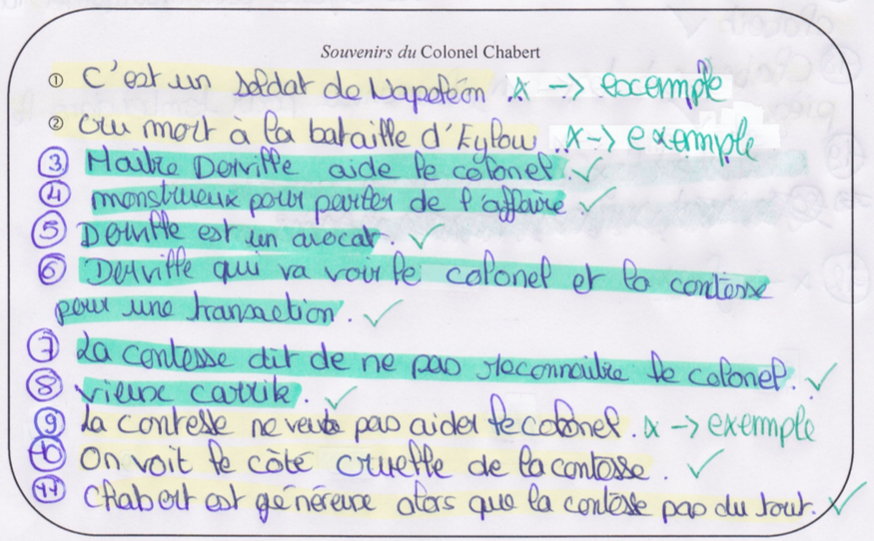 Souvenirs du Colonel Chabert
① C'est un soldat de Napoléon . x -> excemple
② cru mort à la bataille d'Eylow . x -> exemple
③ Maître Derville aide le colonel. ✓
④ monstrueux pour parler de l'affaire. ✓
⑤ Derville est un avocat. ✓
⑥ Derville qui va voir le colonel et la contesse
pour une transaction. ✓
⑦ La contesse dit de ne pas reconnaitre le colonel. ✓
⑧ vieux carrik. ✓
⑨ La contesse ne veut pas aider le colonel. x -> exemple
⑩ On voit le côté cruelle de la contesse. ✓
⑪ Chabert est généreux alors que la contesse pas du tout. ✓